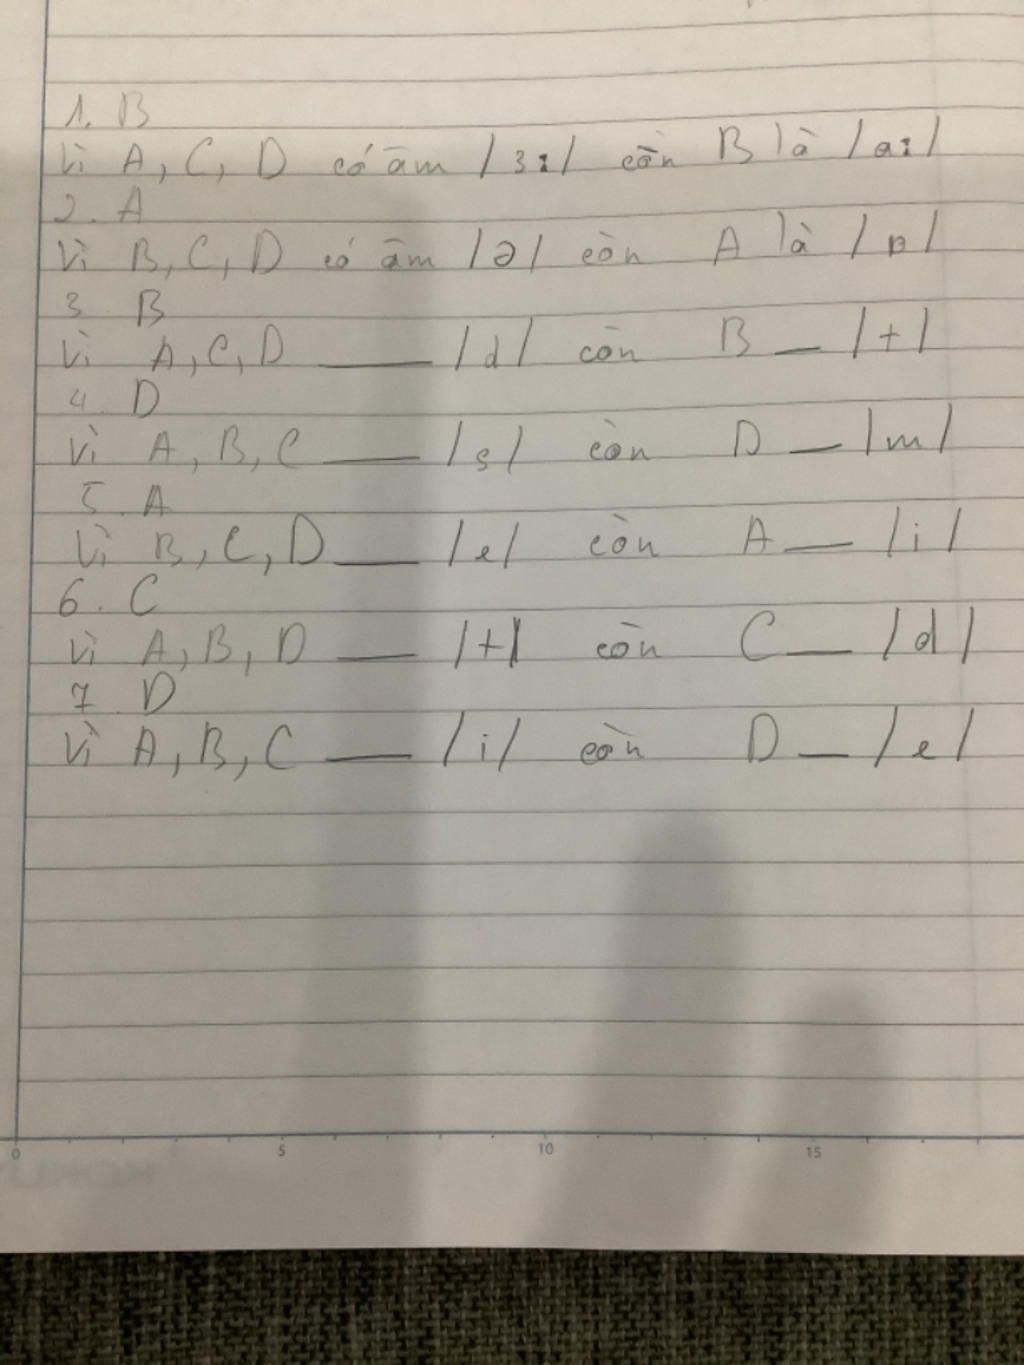 1. B
Vì A, C, D có âm /ɜː/ còn B là /aː/
2. A
Vì B, C, D có âm /ə/ còn A là /ɒ/
3 B
Vì A, C, D ___ /d/ còn B _ /t/
4. D
Vì A, B, C ___ /s/ còn D _ /m/
5. A
Vì B, C, D ___ /e/ còn A _ /i/
6. C
Vì A, B, D ___ /t/ còn C _ /d/
7 D
Vì A, B, C ___ /i/ còn D _ /e/
0 5 10 15